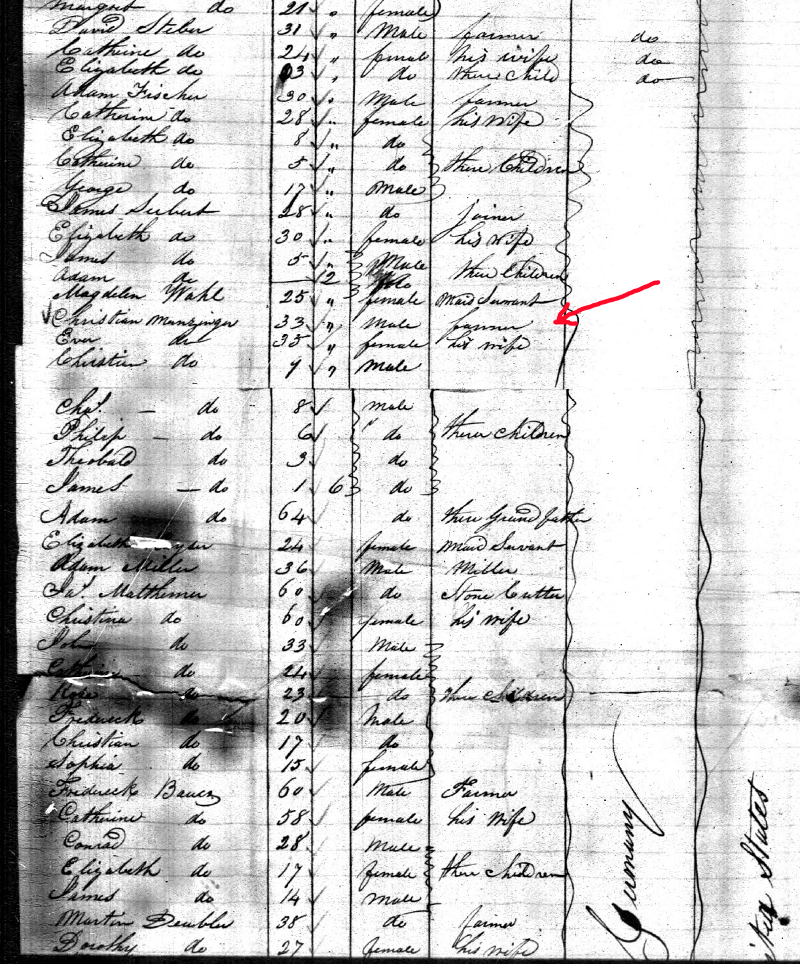 Margret do 21 " female
David Steber 31 " Male farmer do
Catherine do 24 " female his wife do
Elizabeth do 03 " do there Child do
Adam Fischer 30 " Male farmer
Catherine do 28 " female his Wife
Elizabeth do 8 " do
Catherine do 5 " do there Children
George do 17 " Male
James Seibert 28 " do joiner
Elizabeth do 30 " female his Wife
James do 5 " Male
Adam do 2 do there Children
Magdelen Wahl 25 " female Maid Servant
Christian Munzinger 33 " Male farmer
Ever do 35 " female his wife
Christian do 9 " Male
Chas. do 8 male
Philip do 6 " do there children
Theobald do 3 do
James do 1 6 do
Adam do 64 do there Grand father
Elizabeth 24 female Maid Servant
Adam Miller 36 Male Miller
Ja. Matthemer 60 do Stone Cutter
Christina do 60 female his wife
John do 33 Male
do 24 female
do 23 do there Children
Fredreck do 20 Male
Christian do 17 do
Sophia do 15 female
Fredreck Bauer 60 Male Farmer
Catherine do 58 female his Wife
Conrad do 28 Male
Elizabeth do 17 female there Children
James do 14 Male
Martin Deubler 38 do farmer
Dorothy do 27 female his wife
Germany
States